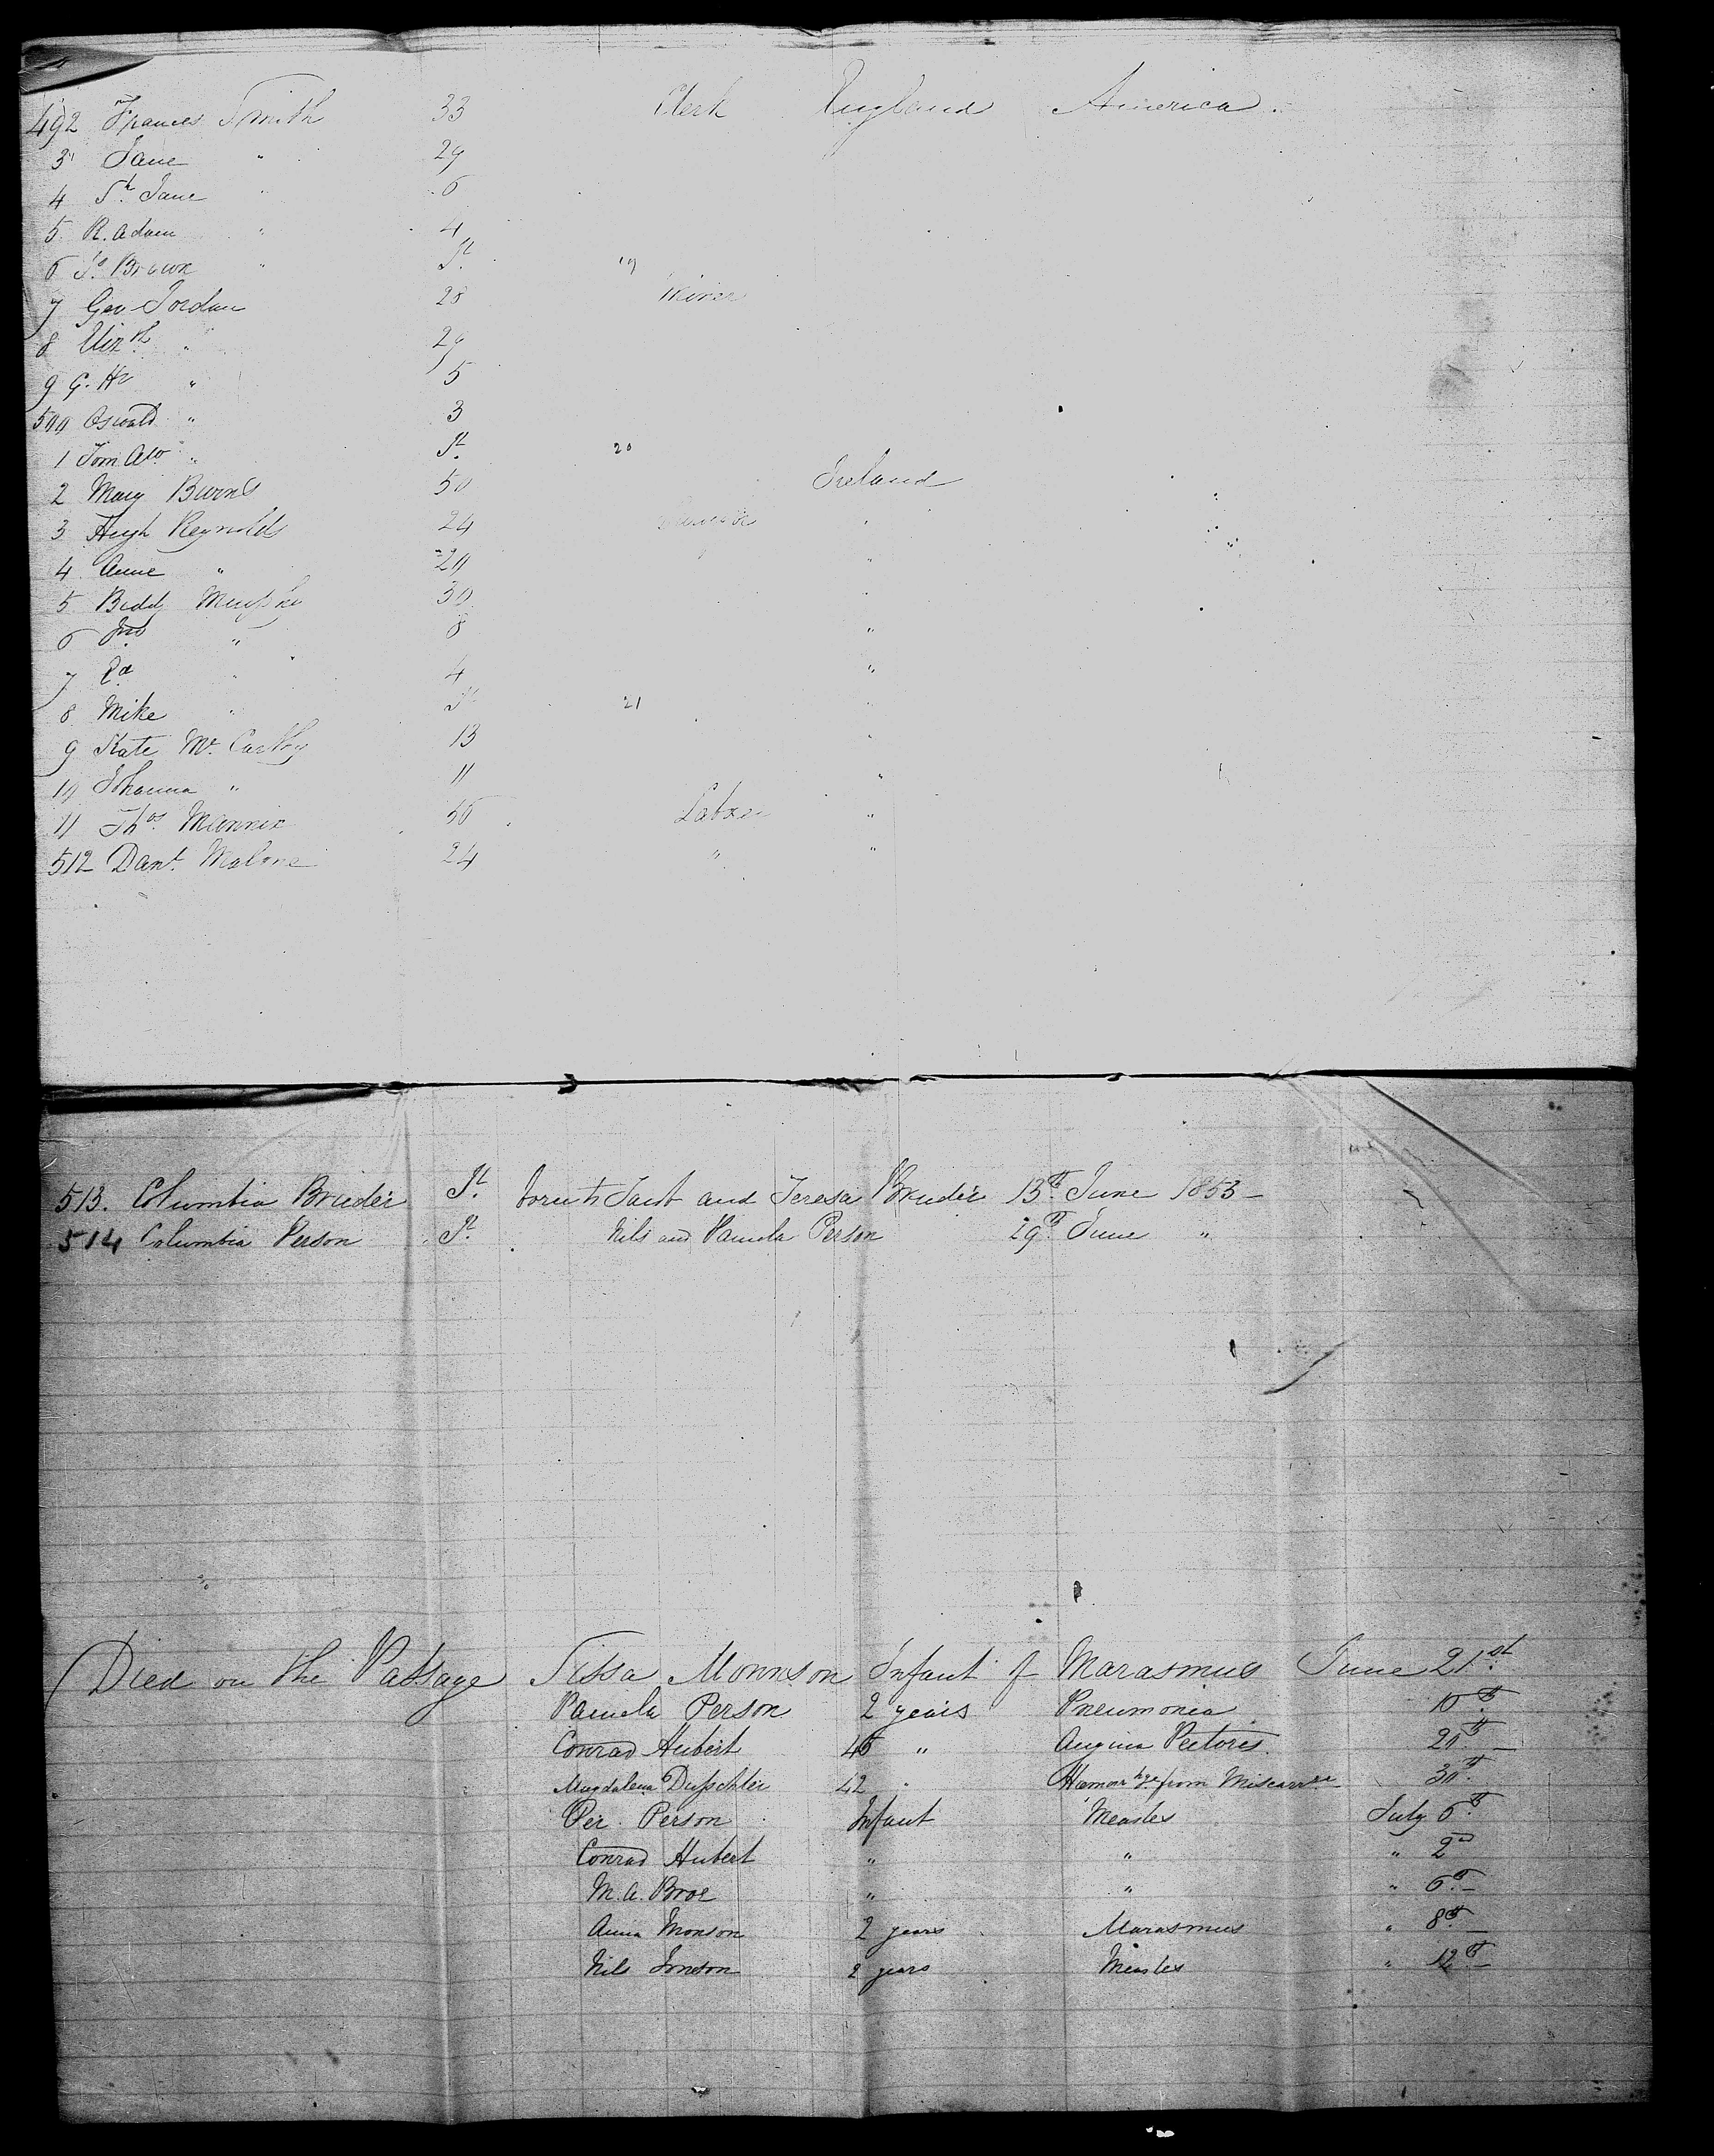 492 Frances Smith 33 Clerk England America
3 Jane " 29
4 Sh. Jane " 6
5 R. Adam " 4
6 Jo. Brown " It. 19
7 Geo Jordan 28 Miner
8 Elizth. " 29
9 G. Hy " 5
500 Oswald " 3
1 Tom " It. 20
2 Mary Burns 50 Ireland
3 Hugh Reynolds 24 "
4 Anne " 20 "
5 Biddy Murphy 30 "
6 Jno " 8 "
7 " 4 "
8 Mike " It. 21 "
9 Kate Mc. Carthy 13 "
10 Johanna " 11 "
11 Thos. Mannix Labxer "
512 Danl. Malone 24 " "
513. Columbia Brieder It. born to Jacob and Teresa Brieder 13th June 1853 —
514 Columbia Person It. Nils and Pamela Person 29th June "
Died on the Passage Sissa Monnson Infant of Marasmus June 21st.
Pamela Person 2 years Pneumonia
Conrad Hubert 45 " Angina Pectoris. 20th —
Magdalena 42 " from 30th.
Per. Person Infant Measles July 6th
Conrad Hubert " " " 2nd
M. A. Broe " " " 6th —
Anna Monson 2 years Marasmus " 8th —
Nils Jonson 2 years Measles " 12th —